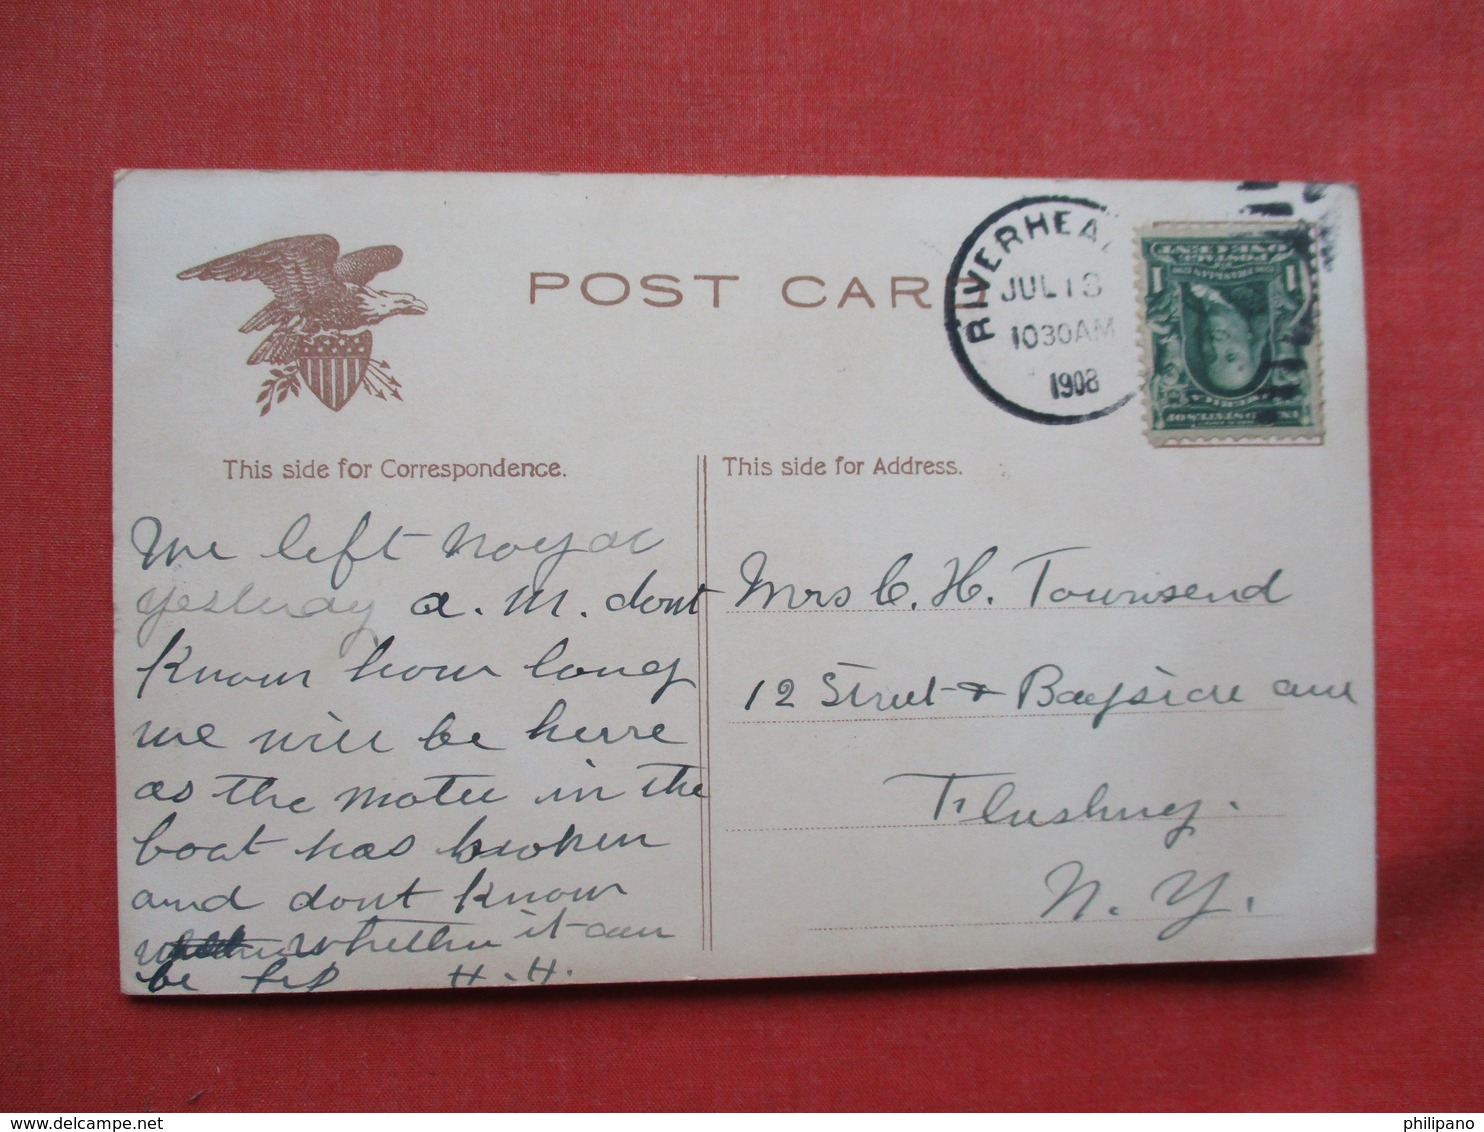 POST CAR
RIVERHEA
JUL 13
10 30 AM
1908
POSTAGE
ONE CENT
1 1
UNITED STATES OF AMERICA
This side for Correspondence.
This side for Address.
We left
yesterday a. m. dont
know how long
we will be herre
as the moter in the
boat has broken
and dont know
whether it can
be fixd H. H.
Mrs C. H. Townsend
12 Street + Bayside ave
Flushing.
N. Y.
philipano
delcampe.net